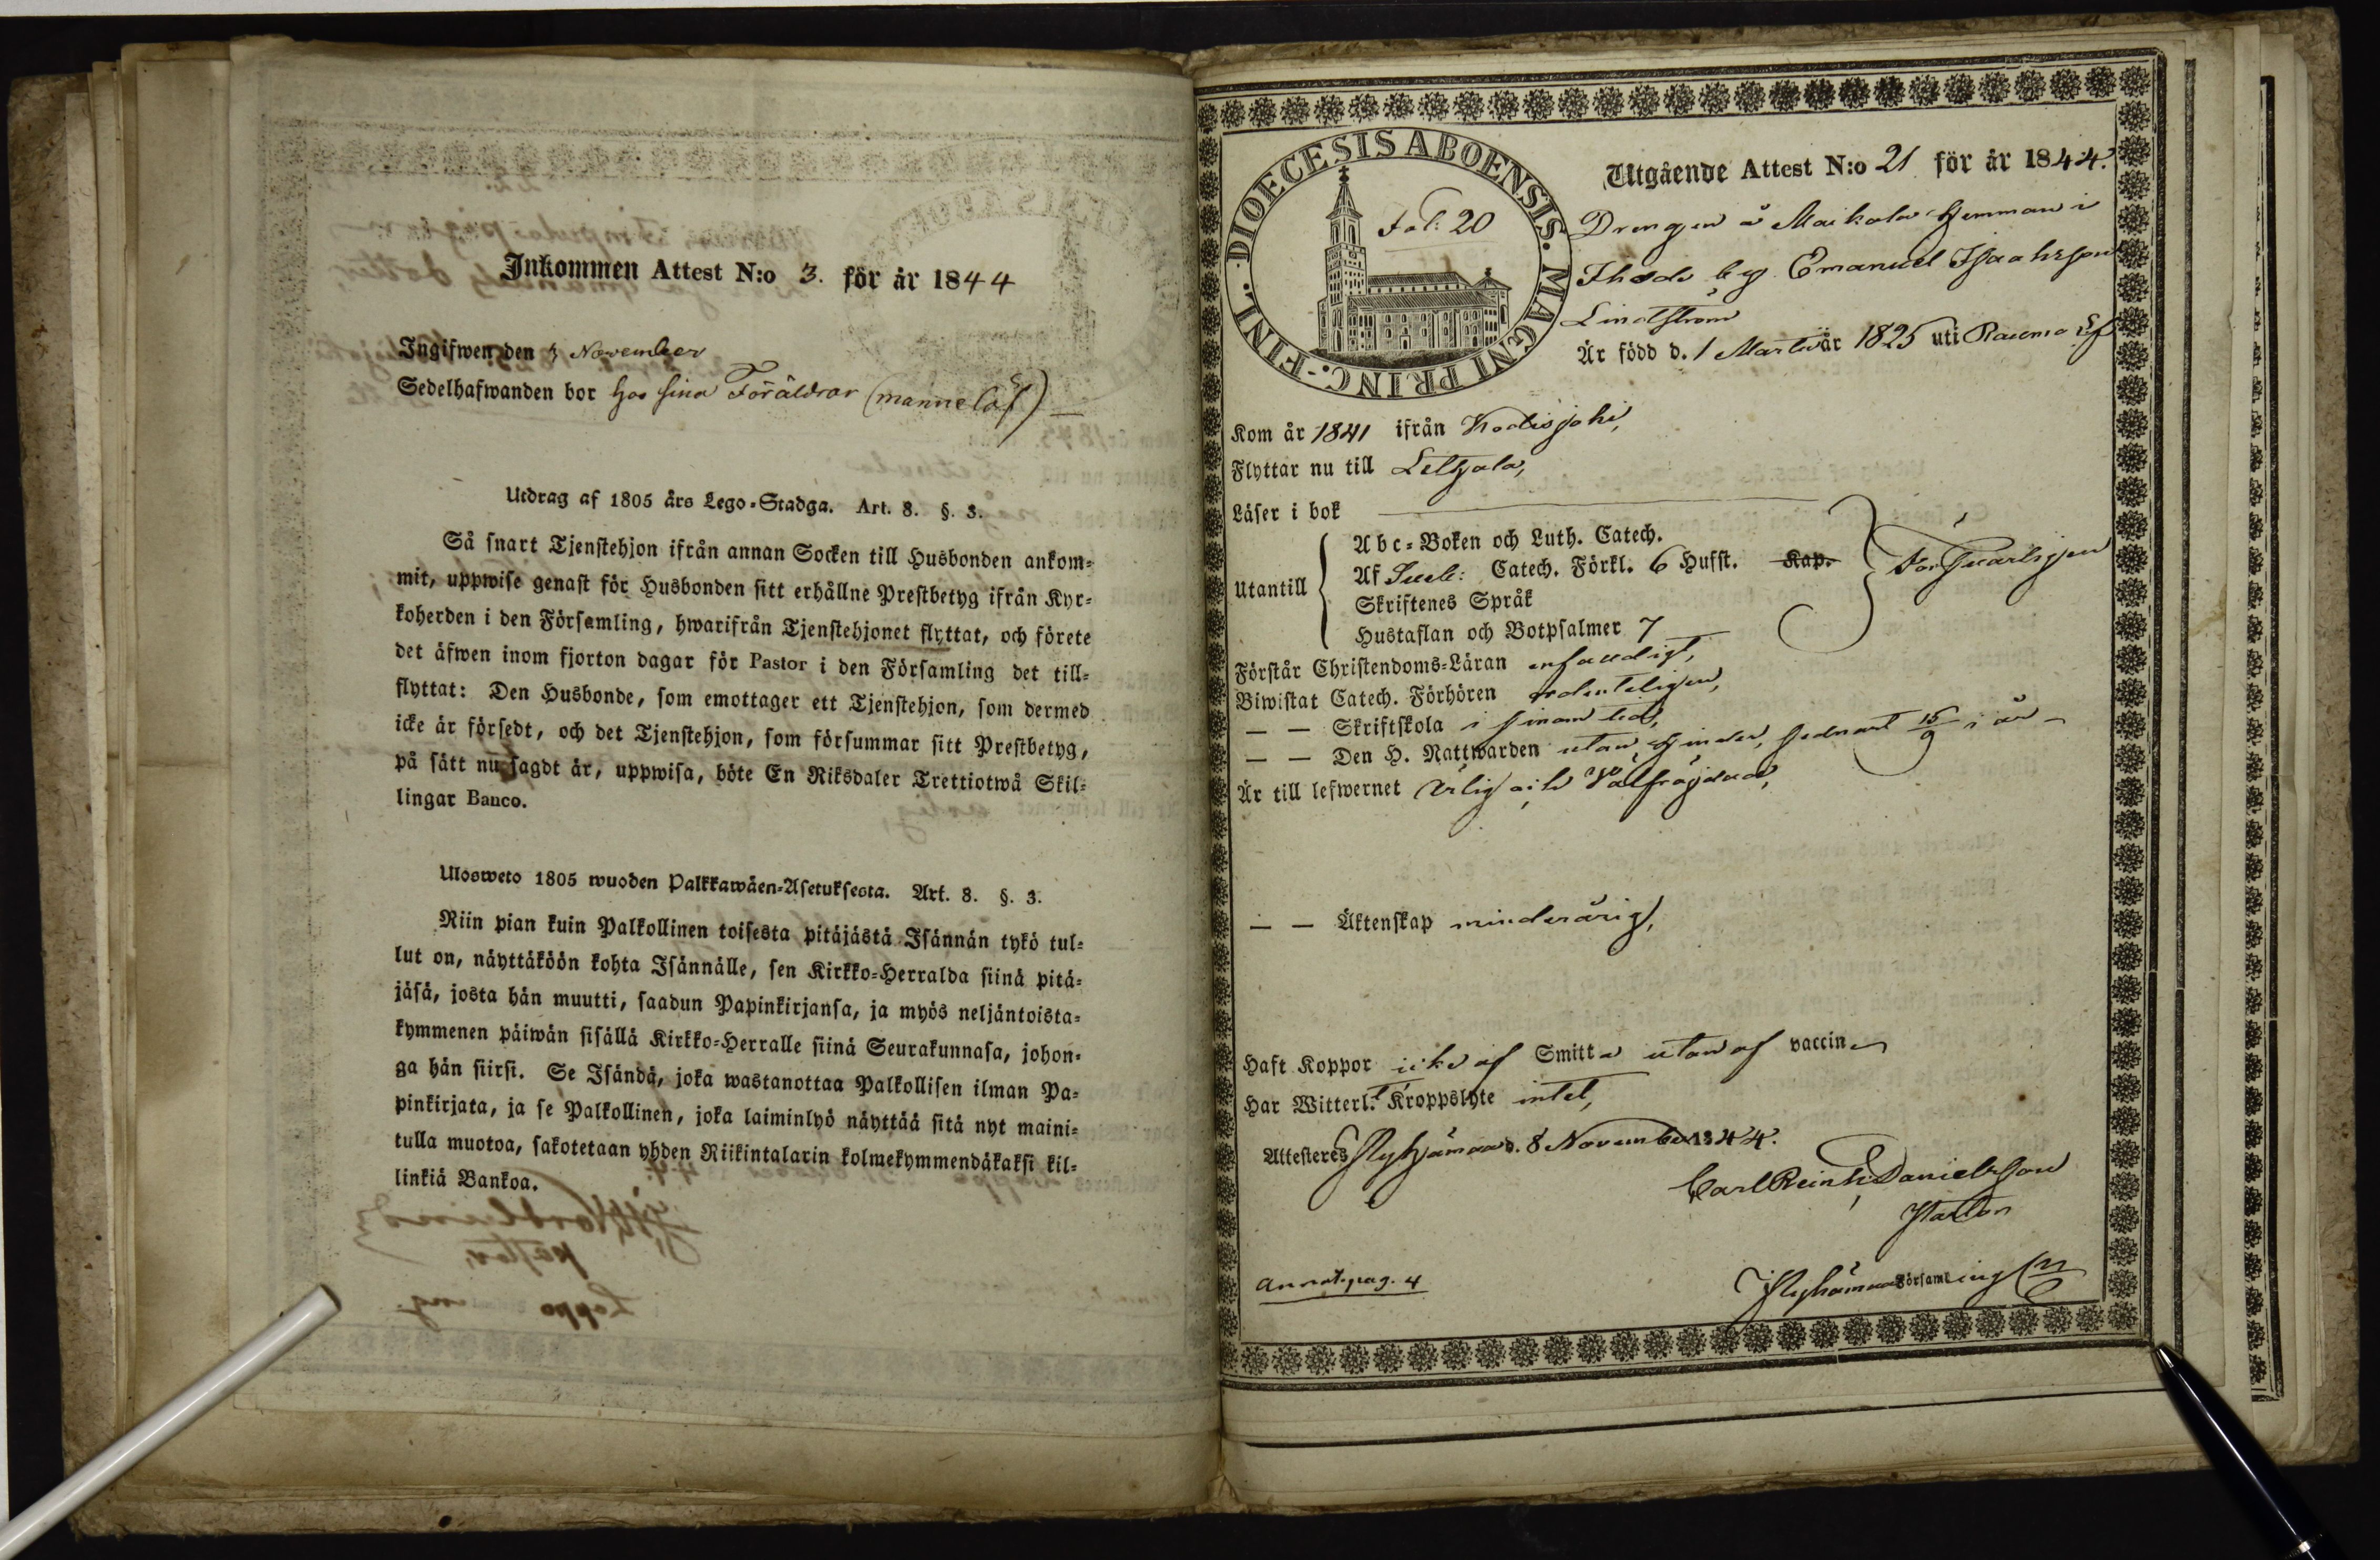 Inkommen Attest N:o 3. för år 1844
Ingifwen den 3 November
Sedelhafwanden bor hos sina Föräldrar
Utdrag af 1805 års Lego-Stadga. Art. 8. §. 3.
Så snart Tjenstehjon ifrån annan Socken till Husbonden ankom-
mit, uppwise genast för Husbonden sitt erhållne Prestbetyg ifrån Kyr-
koherden i den Församling, hwarifrån Tjenstehjonet flyttat, och förete
det äfwen inom fjorton dagar för Pastor i den Församling det till-
flyttat: Den Husbonde, som emottager ett Tjenstehjon, som dermed
icke är försedt, och det Tjenstehjon, som försummar sitt Prestbetyg,
på sätt nu sagdt är, uppwisa, böte En Riksdaler Trettiotwå Skil-
lingar Banco.
Ulosweto 1805 wuoden Palkkawäen-Asetuksesta. Art. 8. §. 3.
Niin pian kuin Palkollinen toisesta pitäjästä Isännän tykö tul-
lut on, näyttäköön kohta Isännälle, sen Kirkko-Herralda siinä pitä-
jäsä, josta hän muutti, saadun Papinkirjansa, ja myös neljäntoista-
kymmenen päiwän sisällä Kirkko-Herralle siinä Seurakunnasa, johon-
ga hän siirsi. Se Isändä, joka wastanottaa Palkollisen ilman Pa-
pinkirjata, ja se Palkollinen, joka laiminlyö näyttää sitä nyt maini-
tulla muotoa, sakotetaan yhden Riikintalarin kolmekymmendäkaksi kil-
linkiä Bankoa.
DIOECESIS ABOENSIS. MAGNI PRINC. FINL.
Fol: 20
Utgående Attest N:o 21 för år 1844.
Drengen å Maikola hemman i
by Emanuel Isaaksson
Lindström
Är född d. 1 Martii år 1825 uti Raumo
Kom år 1841 ifrån Kodisjoki,
Flyttar nu till Letala,
Läser i bok
Utantill
Abc-Boken och Luth. Catech.
Af Sveb: Catech. Förkl. 6 Hufst. Kap.
Skriftenes Språk
Hustaflan och Botpsalmer 7
Förstår Christendoms-Läran
Biwistat Catech. Förhören ordenteligen,
— — Skriftskola i sinom tid,
— — Den H. Nattwarden utan hinder, sednast 15/9 i år
Är till lefwernet ärlig och välfrägdad,
— — Äktenskap minderårig,
Haft Koppor icke af Smitta utan af vaccin
Har Witterl:t Kroppslyte intet,
Attesteres Pyhämaa d. 8 November 1844.
Carl Reinh. Danielsson
Pastor
Annot. pag. 4
Pyhämaa Församling